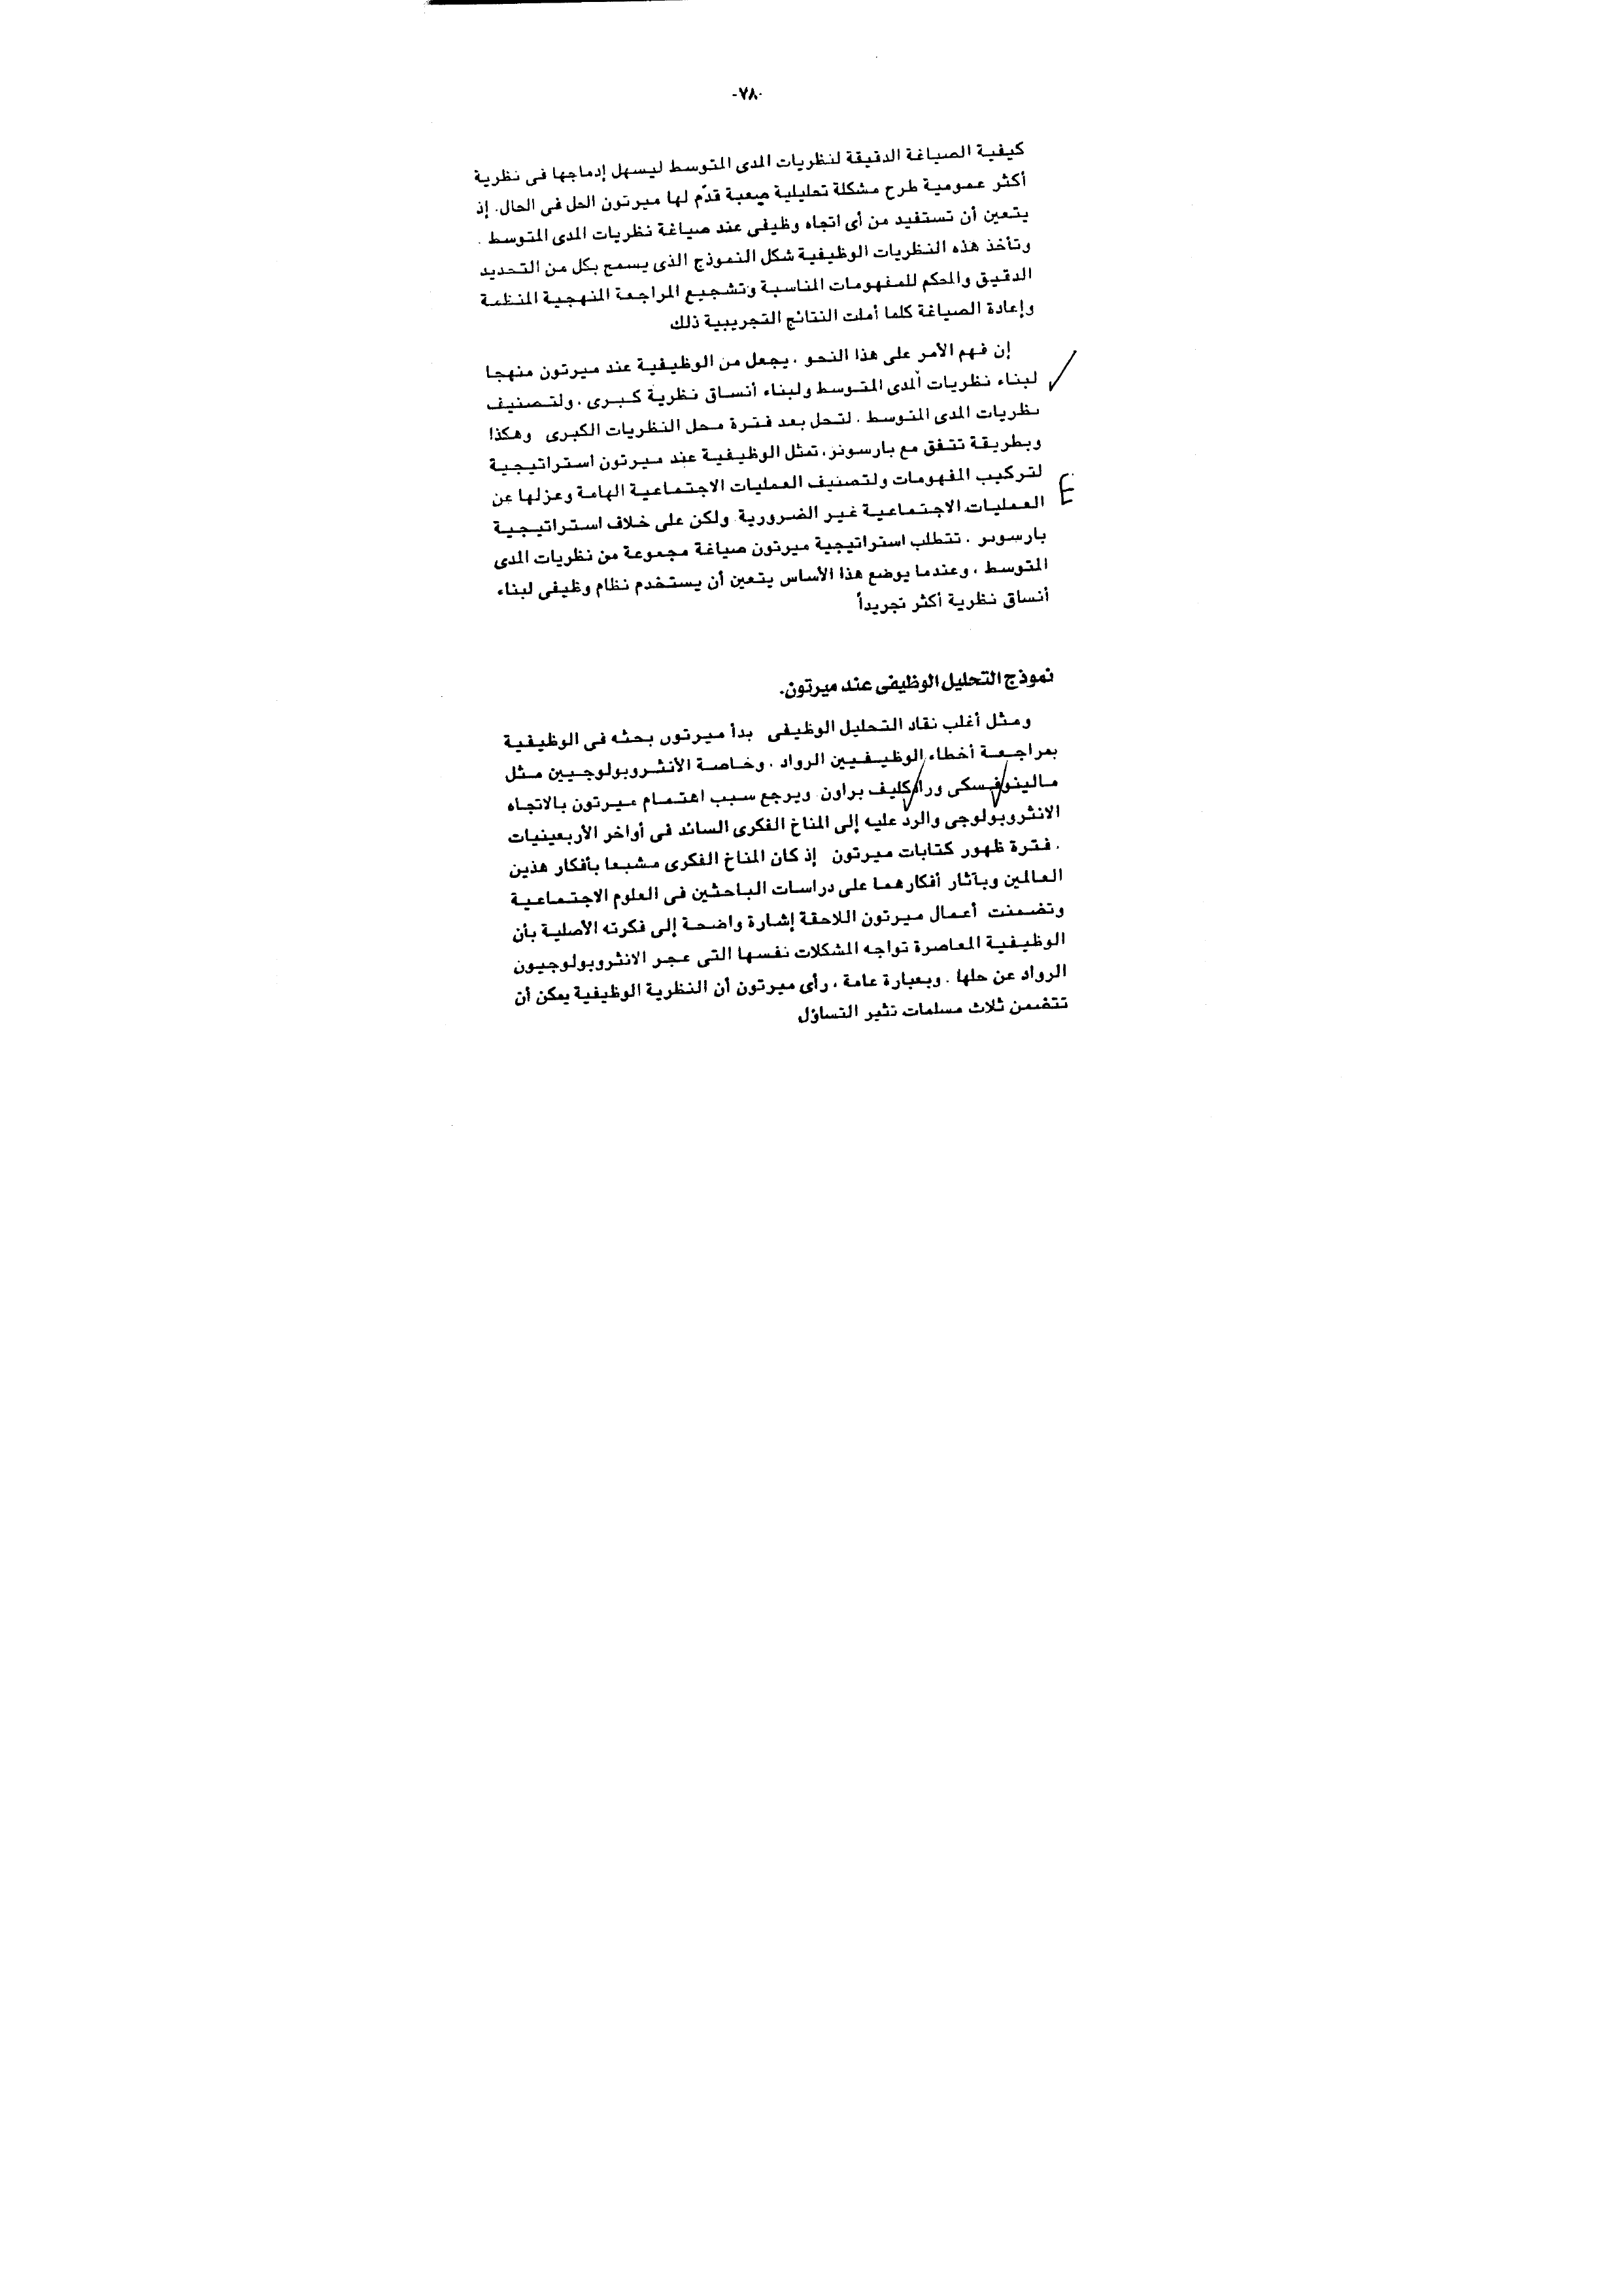 -٧٨-
كيفية الصياغة الدقيقة لنظريات المدى المتوسط ليسهل إدماجها فى نظرية
أكثر عمومية طرح مشكلة تحليلية صعبة قدّم لها ميرتون الحل فى الحال. إذ
يتعين أن تستفيد من أى اتجاه وظيفى عند صياغة نظريات المدى المتوسط .
وتأخذ هذه النظريات الوظيفية شكل النموذج الذى يسمح بكل من التحديد
الدقيق والمحكم للمفهومات المناسبة وتشجيع المراجعة المنهجية المنظمة
وإعادة الصياغة كلما أملت النتائج التجريبية ذلك
إن فهم الأمر على هذا النحو ، يجعل من الوظيفية عند ميرتون منهجا
لبناء نظريات المدى المتوسط ولبناء أنساق نظرية كبرى ، ولتصنيف
نظريات المدى المتوسط . لتحل بعد فترة محل النظريات الكبرى وهكذا
وبطريقة تتفق مع بارسونز، تمثل الوظيفية عند ميرتون استراتيجية
لتركيب المفهومات ولتصنيف العمليات الاجتماعية الهامة وعزلها عن
العمليات الاجتماعية غير الضرورية ولكن على خلاف استراتيجية
بارسونز . تتطلب استراتيجية ميرتون صياغة مجموعة من نظريات المدى
المتوسط ، وعندما يوضع هذا الأساس يتعين أن يستخدم نظام وظيفى لبناء
أنساق نظرية أكثر تجريداً
نموذج التحليل الوظيفى عند ميرتون.
ومثل أغلب نقاد التحليل الوظيفى بدأ ميرتون بحثه فى الوظيفية
بمراجعة أخطاء الوظيفيين الرواد ، وخاصة الأنثروبولوجيين مثل
مالينوفسكى ورادكليف براون ويرجع سبب اهتمام ميرتون بالاتجاه
الانثروبولوجى والرد عليه إلى المناخ الفكرى السائد فى أواخر الأربعينيات
. فترة ظهور كتابات ميرتون إذ كان المناخ الفكرى مشبعا بأفكار هذين
العالمين وبآثار أفكارهما على دراسات الباحثين فى العلوم الاجتماعية
وتضمنت أعمال ميرتون اللاحقة إشارة واضحة إلى فكرته الأصلية بأن
الوظيفية المعاصرة تواجه المشكلات نفسها التى عجز الانثروبولوجيون
الرواد عن حلها . وبعبارة عامة ، رأى ميرتون أن النظرية الوظيفية يمكن أن
تتضمن ثلاث مسلمات تثير التساؤل